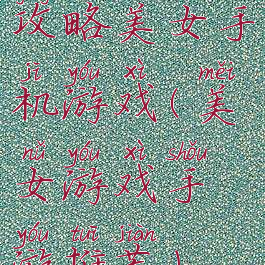 攻略美女手
jī yóu xì měi
机游戏(美
nǚ yóu xì shǒu
女游戏手
yóu tuī jiàn
游推荐)